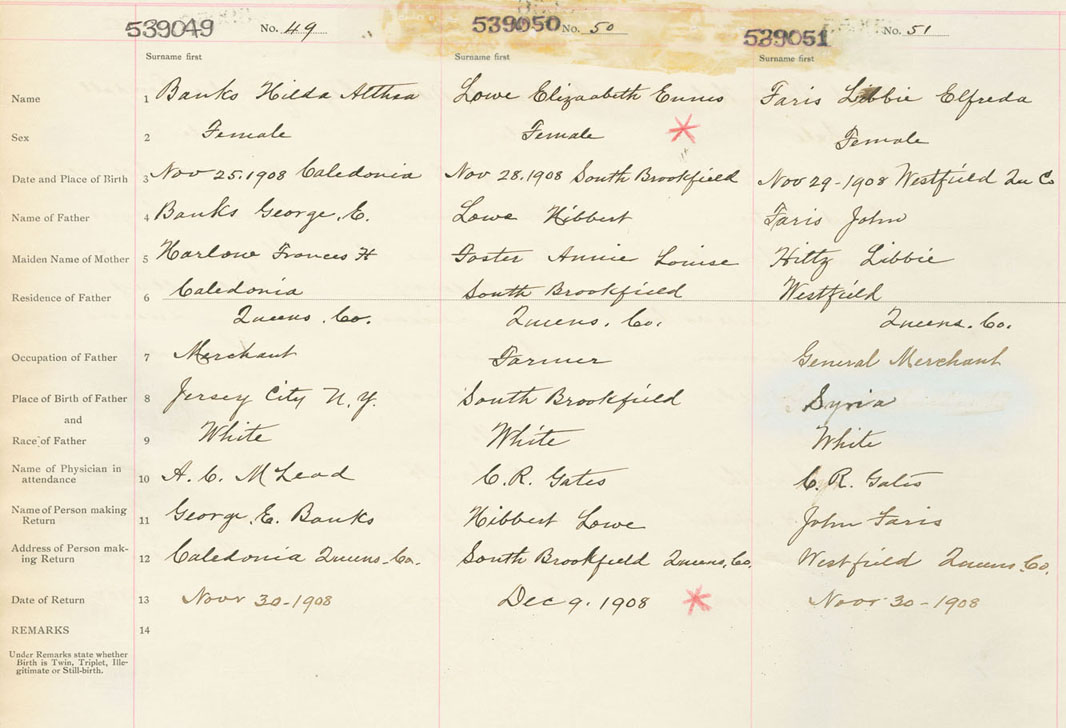 539049 No. 49 539050 No. 50 539051 No. 51
Surname first Surname first Surname first
Name 1 Banks Hilda Althea Lowe Elizabeth Ennis Faris Libbie Elfreda
Sex 2 Female Female Female
Date and Place of Birth 3 Nov 25.1908 Caledonia Nov 28.1908 South Brookfield Nov 29-1908 Westfield Qu Co
Name of Father 4 Banks George. E. Lowe Hibbert Faris John
Maiden Name of Mother 5 Harlow Frances H Foster Annie Louise Hiltz Libbie
Residence of Father 6 Caledonia South Brookfield Westfield
Queens. Co. Queens. Co. Queens. Co.
Occupation of Father 7 Merchant Farmer General Merchant
Place of Birth of Father 8 Jersey City N.Y. South Brookfield Syria
and
Race of Father 9 White White White
Name of Physician in
attendance 10 A. C. McLeod C. R. Gates C. R. Gates
Name of Person making
Return 11 George. E. Banks Hibbert Lowe John Faris
Address of Person mak-
ing Return 12 Caledonia Queens. Co. South Brookfield Queens. Co. Westfield Queens. Co.
Date of Return 13 Novr 30-1908 Dec 9. 1908 Novr 30-1908
REMARKS 14
Under Remarks state whether
Birth is Twin, Triplet, Ille-
gitimate or Still-birth.